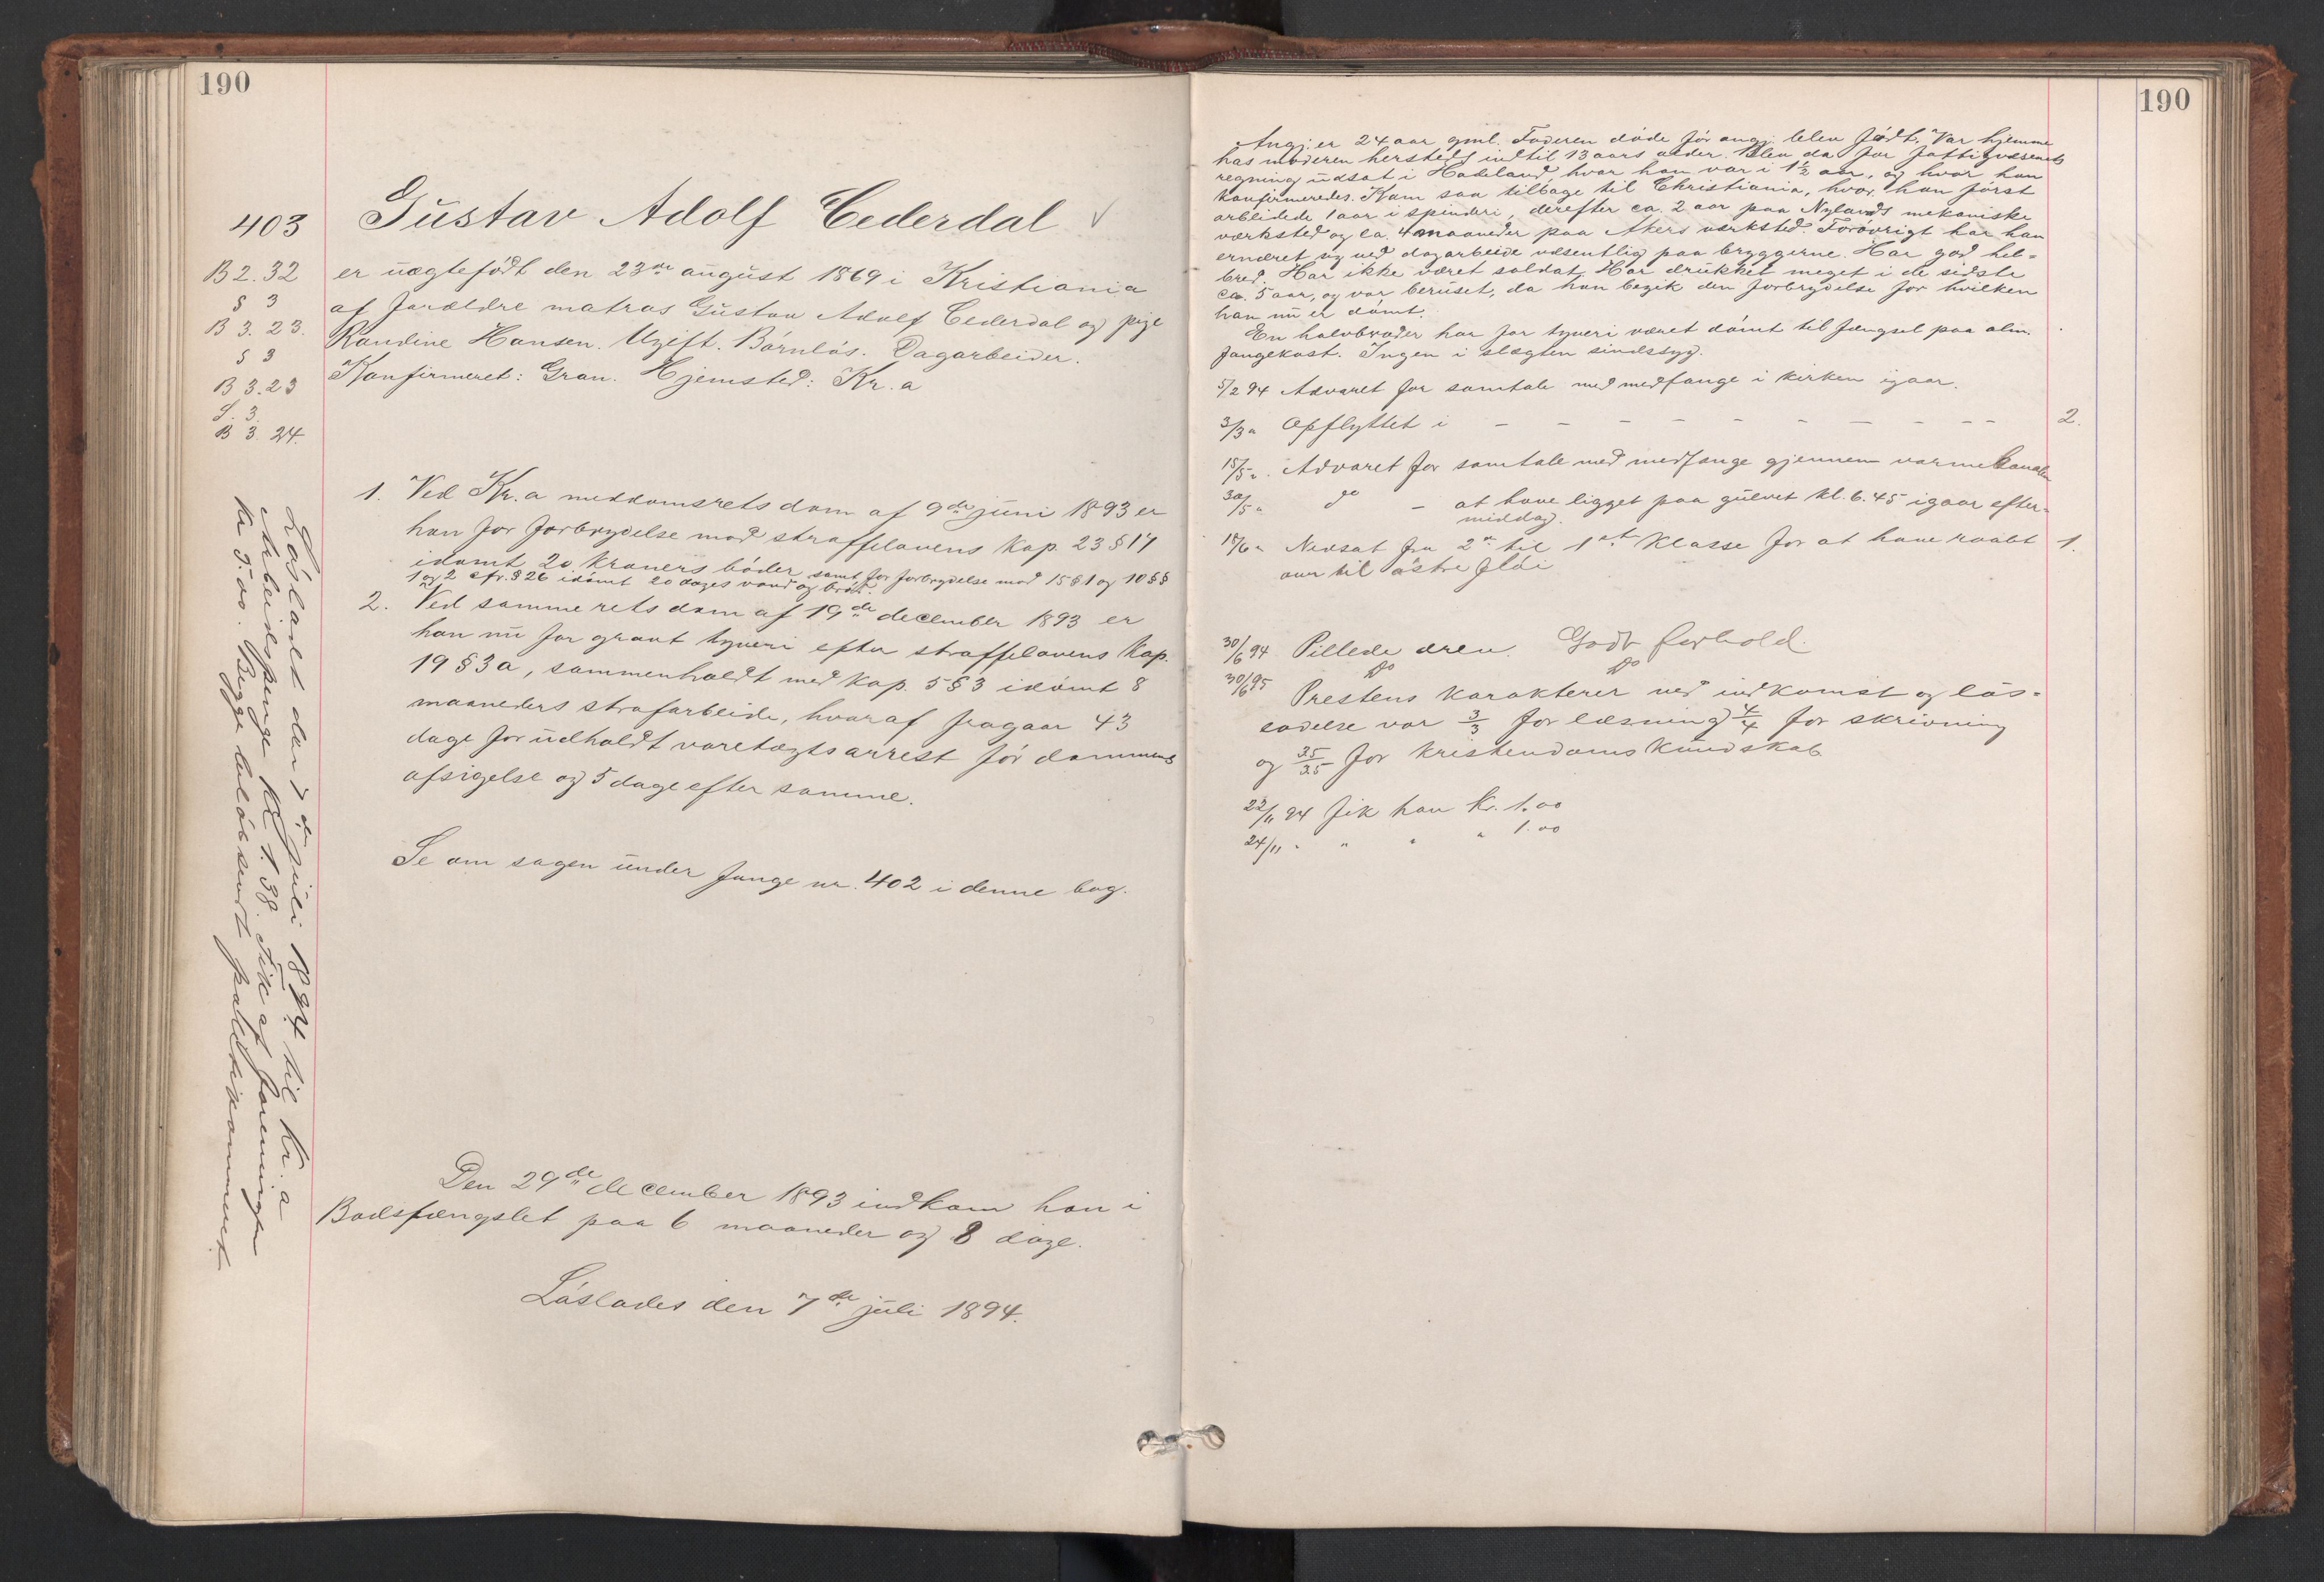 190
403
Gustav Adolf Cederdal
B 2. 32
§ 3
B 3. 23.
§ 3
B 3. 23
S. 3.
B 3. 24.
er uægtefødt den 23de august 1869 i Kristiania
af forældre matros Gustav Adolf Cederdal og pige
Randine Hansen. Ugift. Børnløs. Dagarbeider.
Konfirmeret: Gran. Hjemsted: Kr.a
1. Ved Kr.a meddomsrets dom af 9de juni 1893 er
han for forbrydelse mod straffelovens kap. 23 § 17
idømt 20 kroners bøder samt for forbrydelse mod 15 § 1 og 10 §§
1 og 2 cfr. § 26 idømt 20 dages vand og brød.
2. Ved samme rets dom af 19de december 1893 er
han nu for grovt tyveri efter straffelovens kap.
19 § 3 a, sammenholdt med kap. 5 § 3 idømt 8
maaneders strafarbeide, hvoraf fragaar 43
dage for udholdt varetægtsarrest før dommens
afsigelse og 5 dage efter samme.
Se om sagen under fange nr. 402 i denne bog.
Den 29de december 1893 indkom han i
Bodsfængslet paa 6 maaneder og 8 dage.
Løslades den 7de juli 1894.
Løsladt den 7de juli 1894 til Kr.a
Arbeidspenge Kr. 1.38. Fik af foreningen
Kr. 7.00. Begge beløb sendt politikammeret.
190
Angj. er 24 aar gml. Faderen døde før angj. blev født. Var hjemme
hos moderen hersteds indtil 13 aars alder. Blev da for fattigvæsenets
regning udsat i Hadeland, hvor han var i 1½ aar, og hvor han
konfirmeredes. Kom saa tilbage til Christiania, hvor han først
arbeidede 1 aar i spinderi, derefter ca. 2 aar paa Nylands mekaniske
værksted og ca. 4 maaneder paa Akers værksted. Forøvrigt har han
ernæret sig ved dagarbeide væsentlig paa bryggerne. Har god hel-
bred. Har ikke været soldat. Har drukket meget i de sidste
ca. 5 aar, og var beruset, da han begik den forbrydelse for hvilken
han nu er dømt.
En halvbroder har for tyveri været dømt til fængsel paa alm.
fangekost. Ingen i slægten sindssyg.
5/2 94 Advaret for samtale med medfange i kirken igaar.
3/3 " Opflyttet i — — — — — — — — — 2.
15/5 " Advaret for samtale med medfange gjennem varmekanalen
30/5 " do — at have ligget paa gulvet kl. 6.45 igaar efter-
middag.
18/6 " Nedsat fra 2den til 1ste klasse for at have raabt 1.
over til østre fløi
30/6 94 Pillede drev. Godt forhold.
30/6 95 do do
Prestens karakterer ved indkomst og løs-
ladelse var 3/3 for læsning 4/4 for skrivning
og 35/35 for kristendomskundskab
22/11 94 fik han Kr. 1.00
24/11 " " " " 1.00